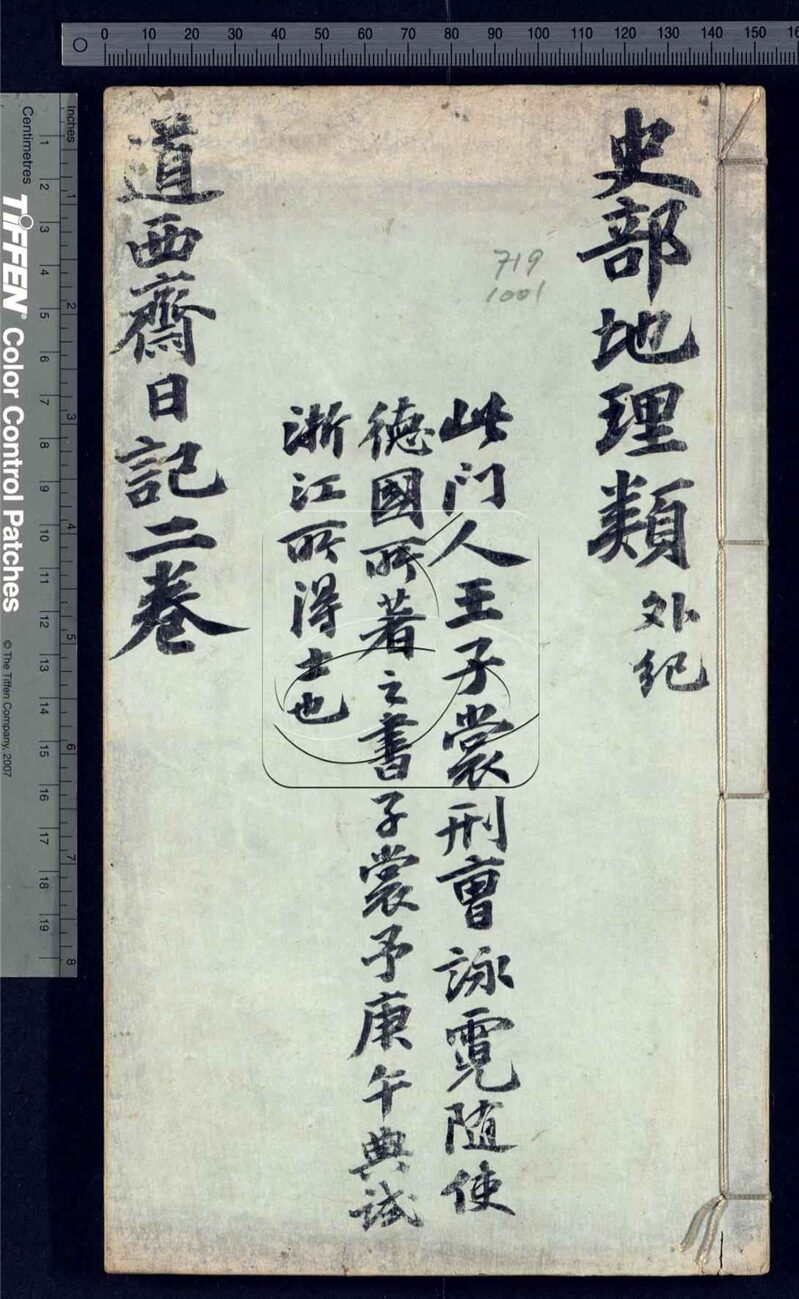 0 10 20 30 40 50 60 70 80 90 100 110 120 130 140 150 16
Inches
Centimetres
1 2 3 4 5 6 7 8
1 2 3 4 5 6 7 8 9 10 11 12 13 14 15 16 17 18 19
TIFFEN® Color Control Patches
© The Tiffen Company, 2007
史部地理類 外紀
719
1001
此门人王子裳刑曹詠霓随使
德國所著之書子裳予庚午典試
浙江所得士也
道西齋日記二卷